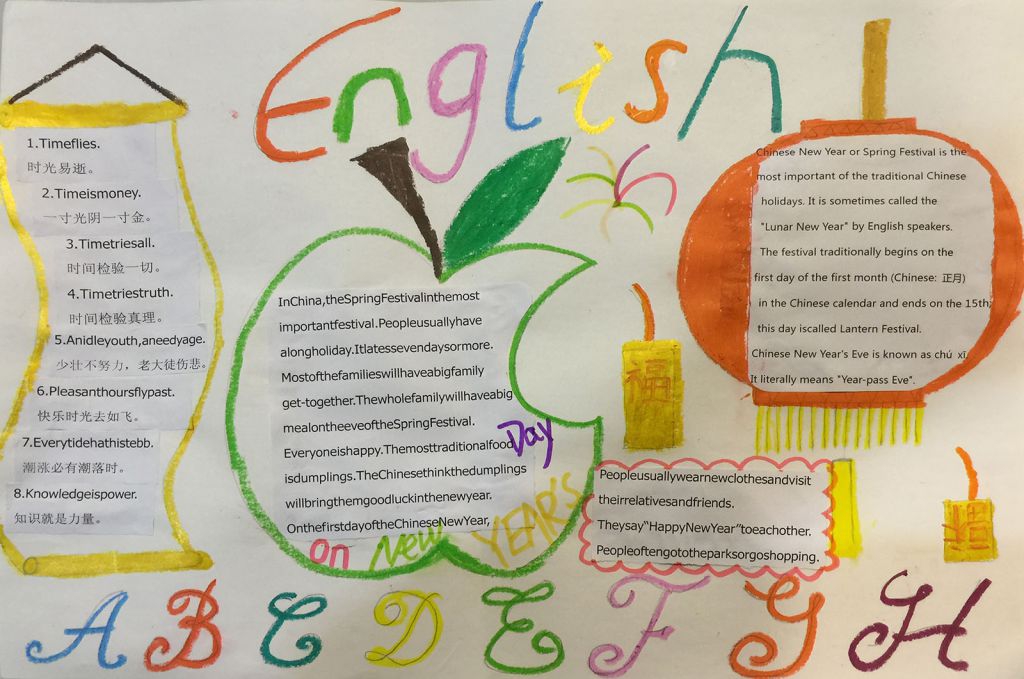 English
1.Timeflies.
时光易逝。
2.Timeismoney.
一寸光阴一寸金。
3.Timetriesall.
时间检验一切。
4.Timetriestruth.
时间检验真理。
5.Anidleyouth,aneedyage.
少壮不努力，老大徒伤悲。
6.Pleasanthoursflypast.
快乐时光去如飞。
7.Everytidehathistebb.
潮涨必有潮落时。
8.Knowledgeispower.
知识就是力量。
InChina,theSpringFestivalinthemost
importantfestival.Peopleusuallyhave
alongholiday.Itlatessevendaysormore.
Mostofthefamilieswillhaveabigfamily
get-together.Thewholefamilywillhaveabig
mealontheeveoftheSpringFestival.
Everyoneishappy.Themosttraditionalfood
isdumplings.TheChinesethinkthedumplings
willbringthemgoodluckinthenewyear.
OnthefirstdayoftheChineseNewYear,
On New YEAR'S Day
Chinese New Year or Spring Festival is the
most important of the traditional Chinese
holidays. It is sometimes called the
"Lunar New Year" by English speakers.
The festival traditionally begins on the
first day of the first month (Chinese: 正月)
in the Chinese calendar and ends on the 15th;
this day iscalled Lantern Festival.
Chinese New Year's Eve is known as chú xī.
It literally means "Year-pass Eve".
福
Peopleusuallywearnewclothesandvisit
theirrelativesandfriends.
Theysay“HappyNewYear”toeachother.
Peopleoftengototheparksorgoshopping.
福
A B C D E F G H